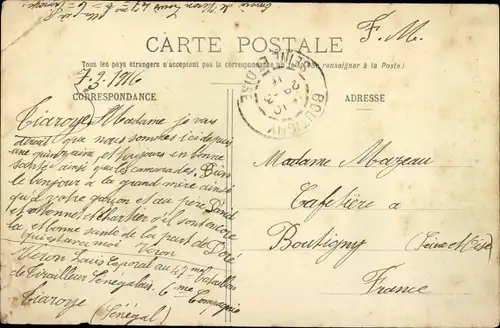 CARTE POSTALE
F. M.
Tous les pays étrangers n'acceptent pas la correspondance au
se renseigner à la Poste)
7.3.1916
CORRESPONDANCE
ADRESSE
BOUTIGNY
SEINE ET OISE
Tiaroye Madame je vous
dirait que nous sommes ici depuis
une quinzaine et toujours en bonne
santé ainsi que les camarades. Bien
le bonjour à la grand mère ainsi
qu'a votre garçon et au père
et s'il sont encore
la, et bonne santé de la part de
qui est avec moi Veron
Veron Louis Caporal au 45 me bataillon
de Tirailleur Sénégalais, 6 me Compagnie
Tiaroye (Sénégal)
Madame Mazeau
Cafetière à
Boutigny (Seine et Oise)
France